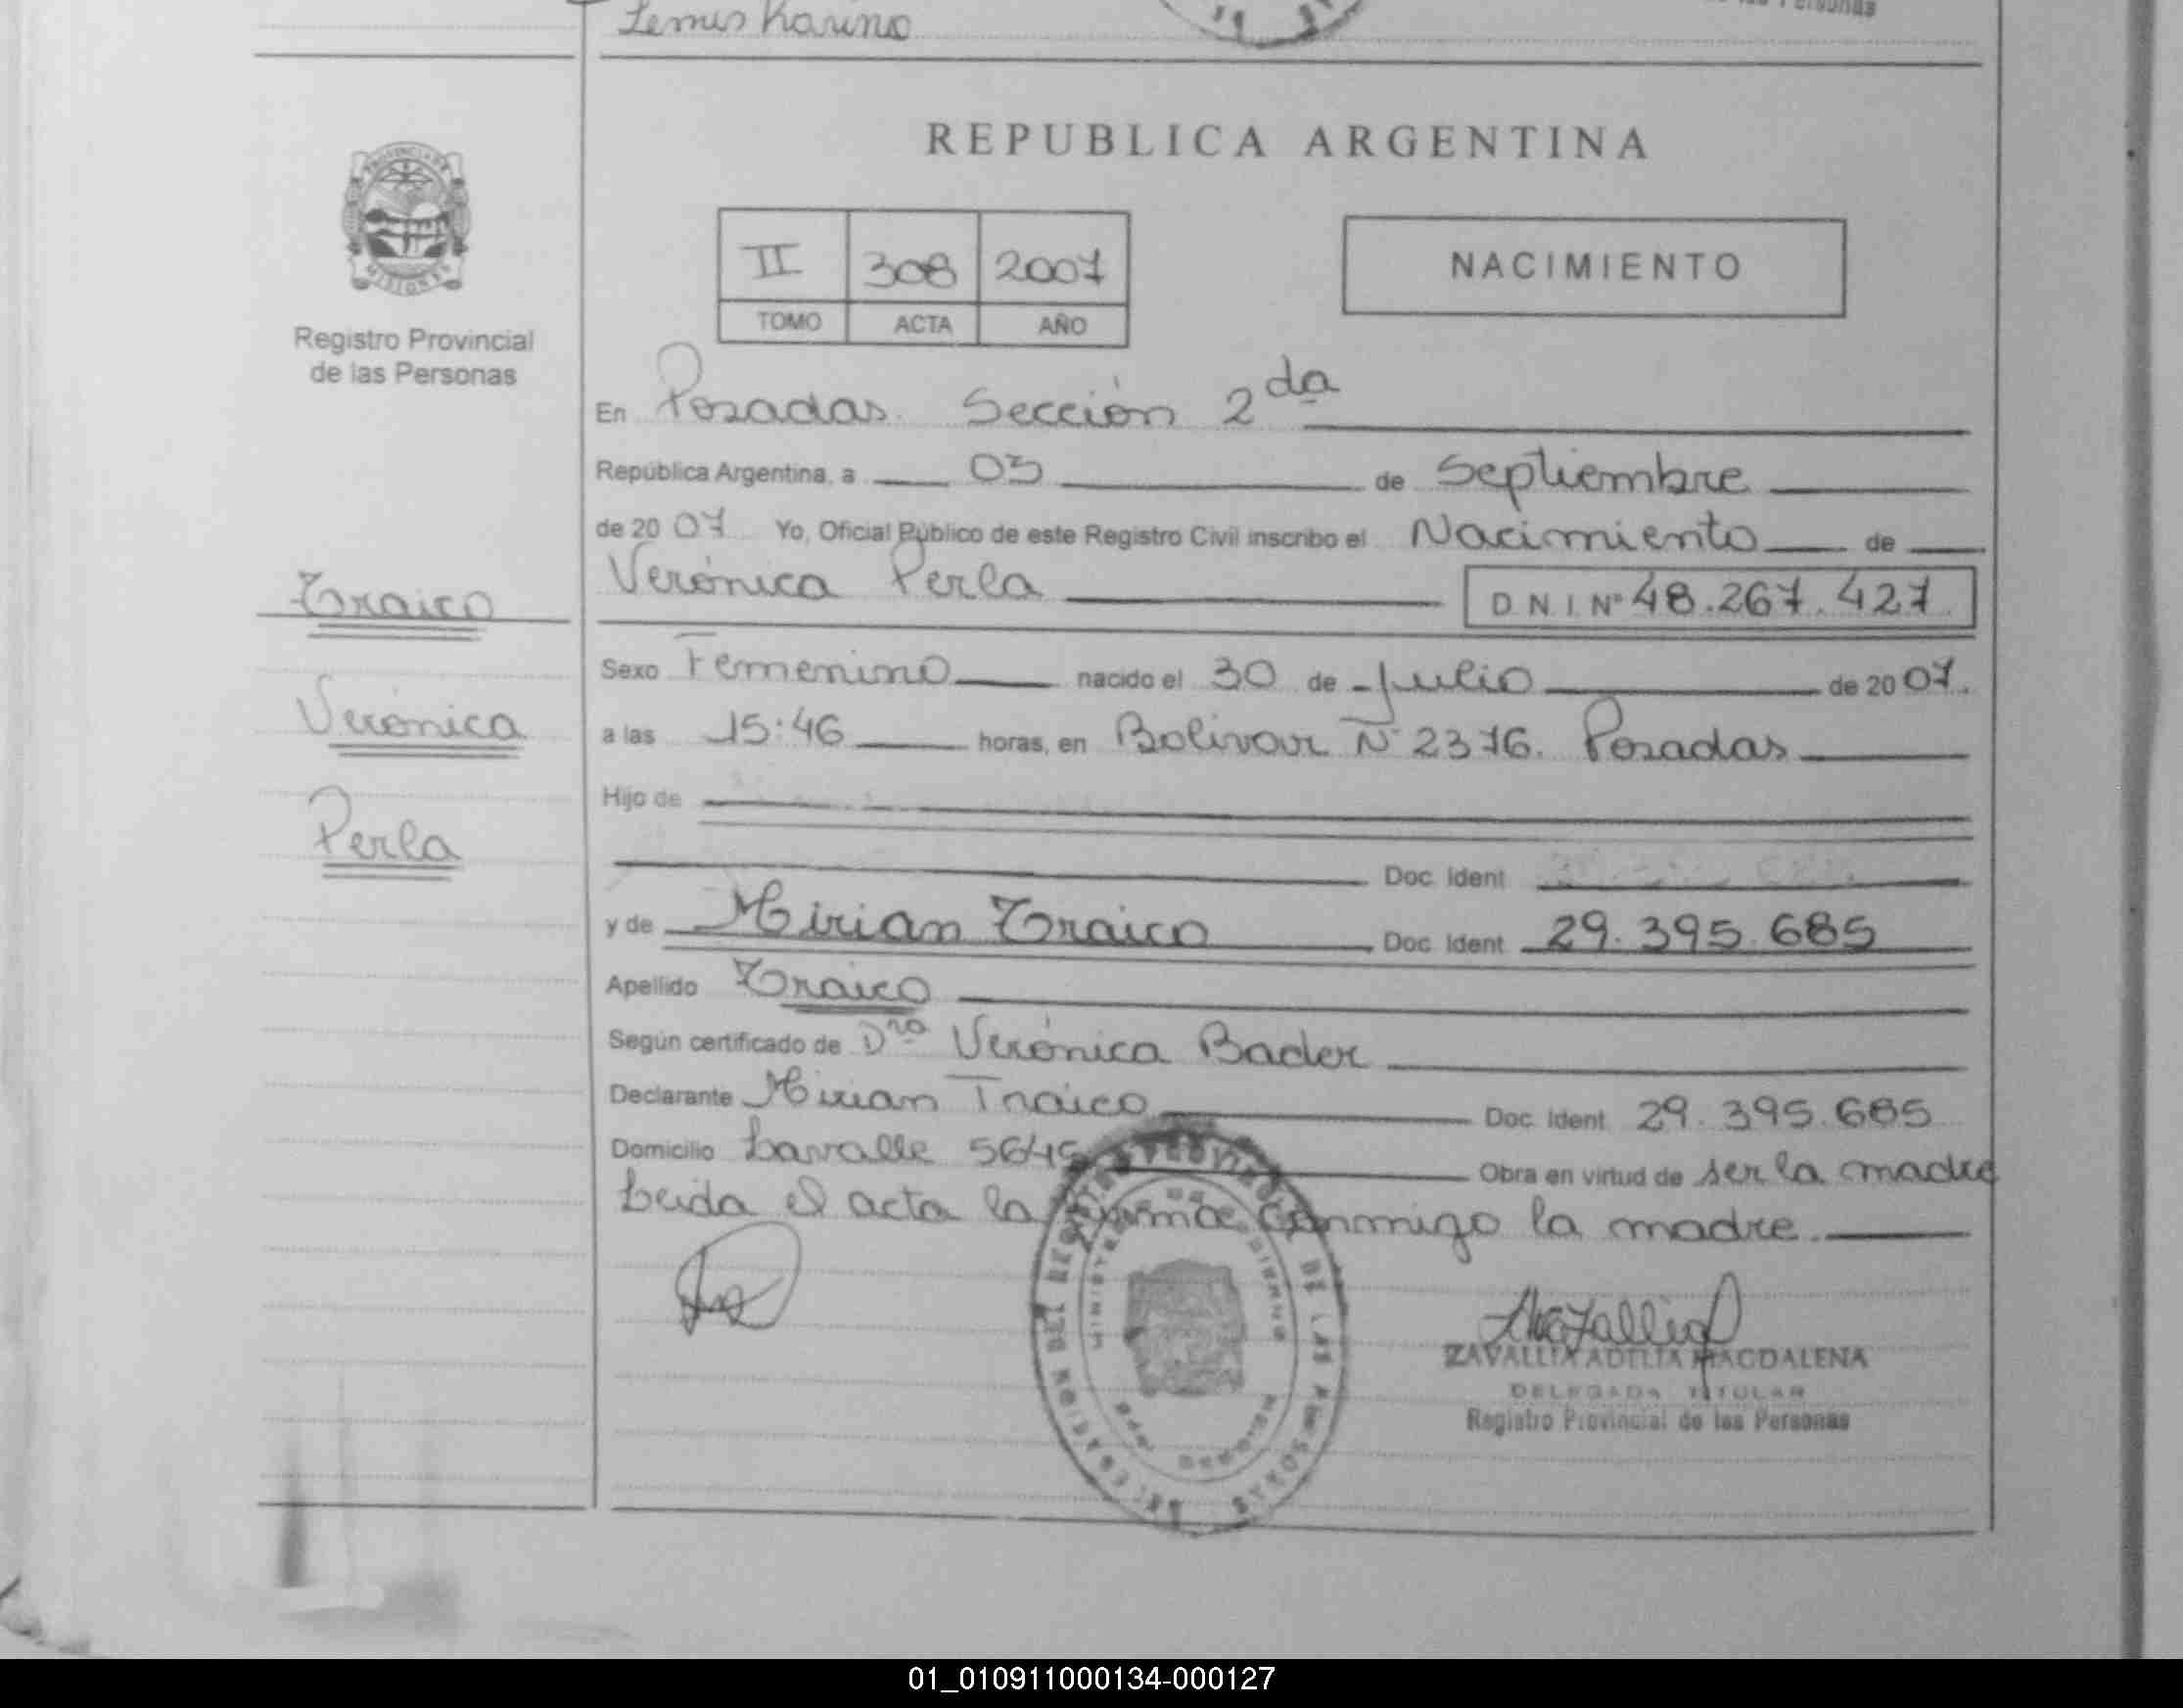 Lemes Karina
de las Personas
REPUBLICA ARGENTINA
PROVINCIA DE
MISIONES
Registro Provincial
de las Personas
II 308 2007
TOMO ACTA AÑO
NACIMIENTO
En Posadas. Sección 2da
República Argentina, a 03 de Septiembre
de 2007 Yo, Oficial Público de este Registro Civil inscribo el Nacimiento de
Verónica Perla D.N.I. Nº 48.267.427
Traico
Verónica
Perla
Sexo Femenino nacido el 30 de Julio de 2007.
a las 15:46 horas, en Bolivar Nº 2376. Posadas
Hijo de
Doc. Ident
y de Mirian Traico Doc. Ident 29.395.685
Apellido Traico
Según certificado de Dra Verónica Bader
Declarante Mirian Traico Doc. Ident. 29.395.685
Domicilio Lavalle 5645 Obra en virtud de ser la madre
Leida el acta la firma conmigo la madre.
DIRECCION DEL REGISTRO PROVINCIAL DE LAS PERSONAS
MINISTERIO DE GOBIERNO
ZAVALLIA ADILIA MAGDALENA
DELEGADA TITULAR
Registro Provincial de las Personas
01_010911000134-000127